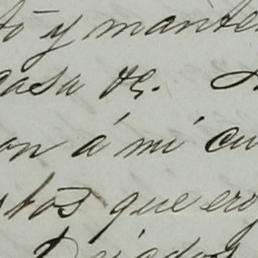 tó y mante
casa &c.
on á mi cu
tos que ero